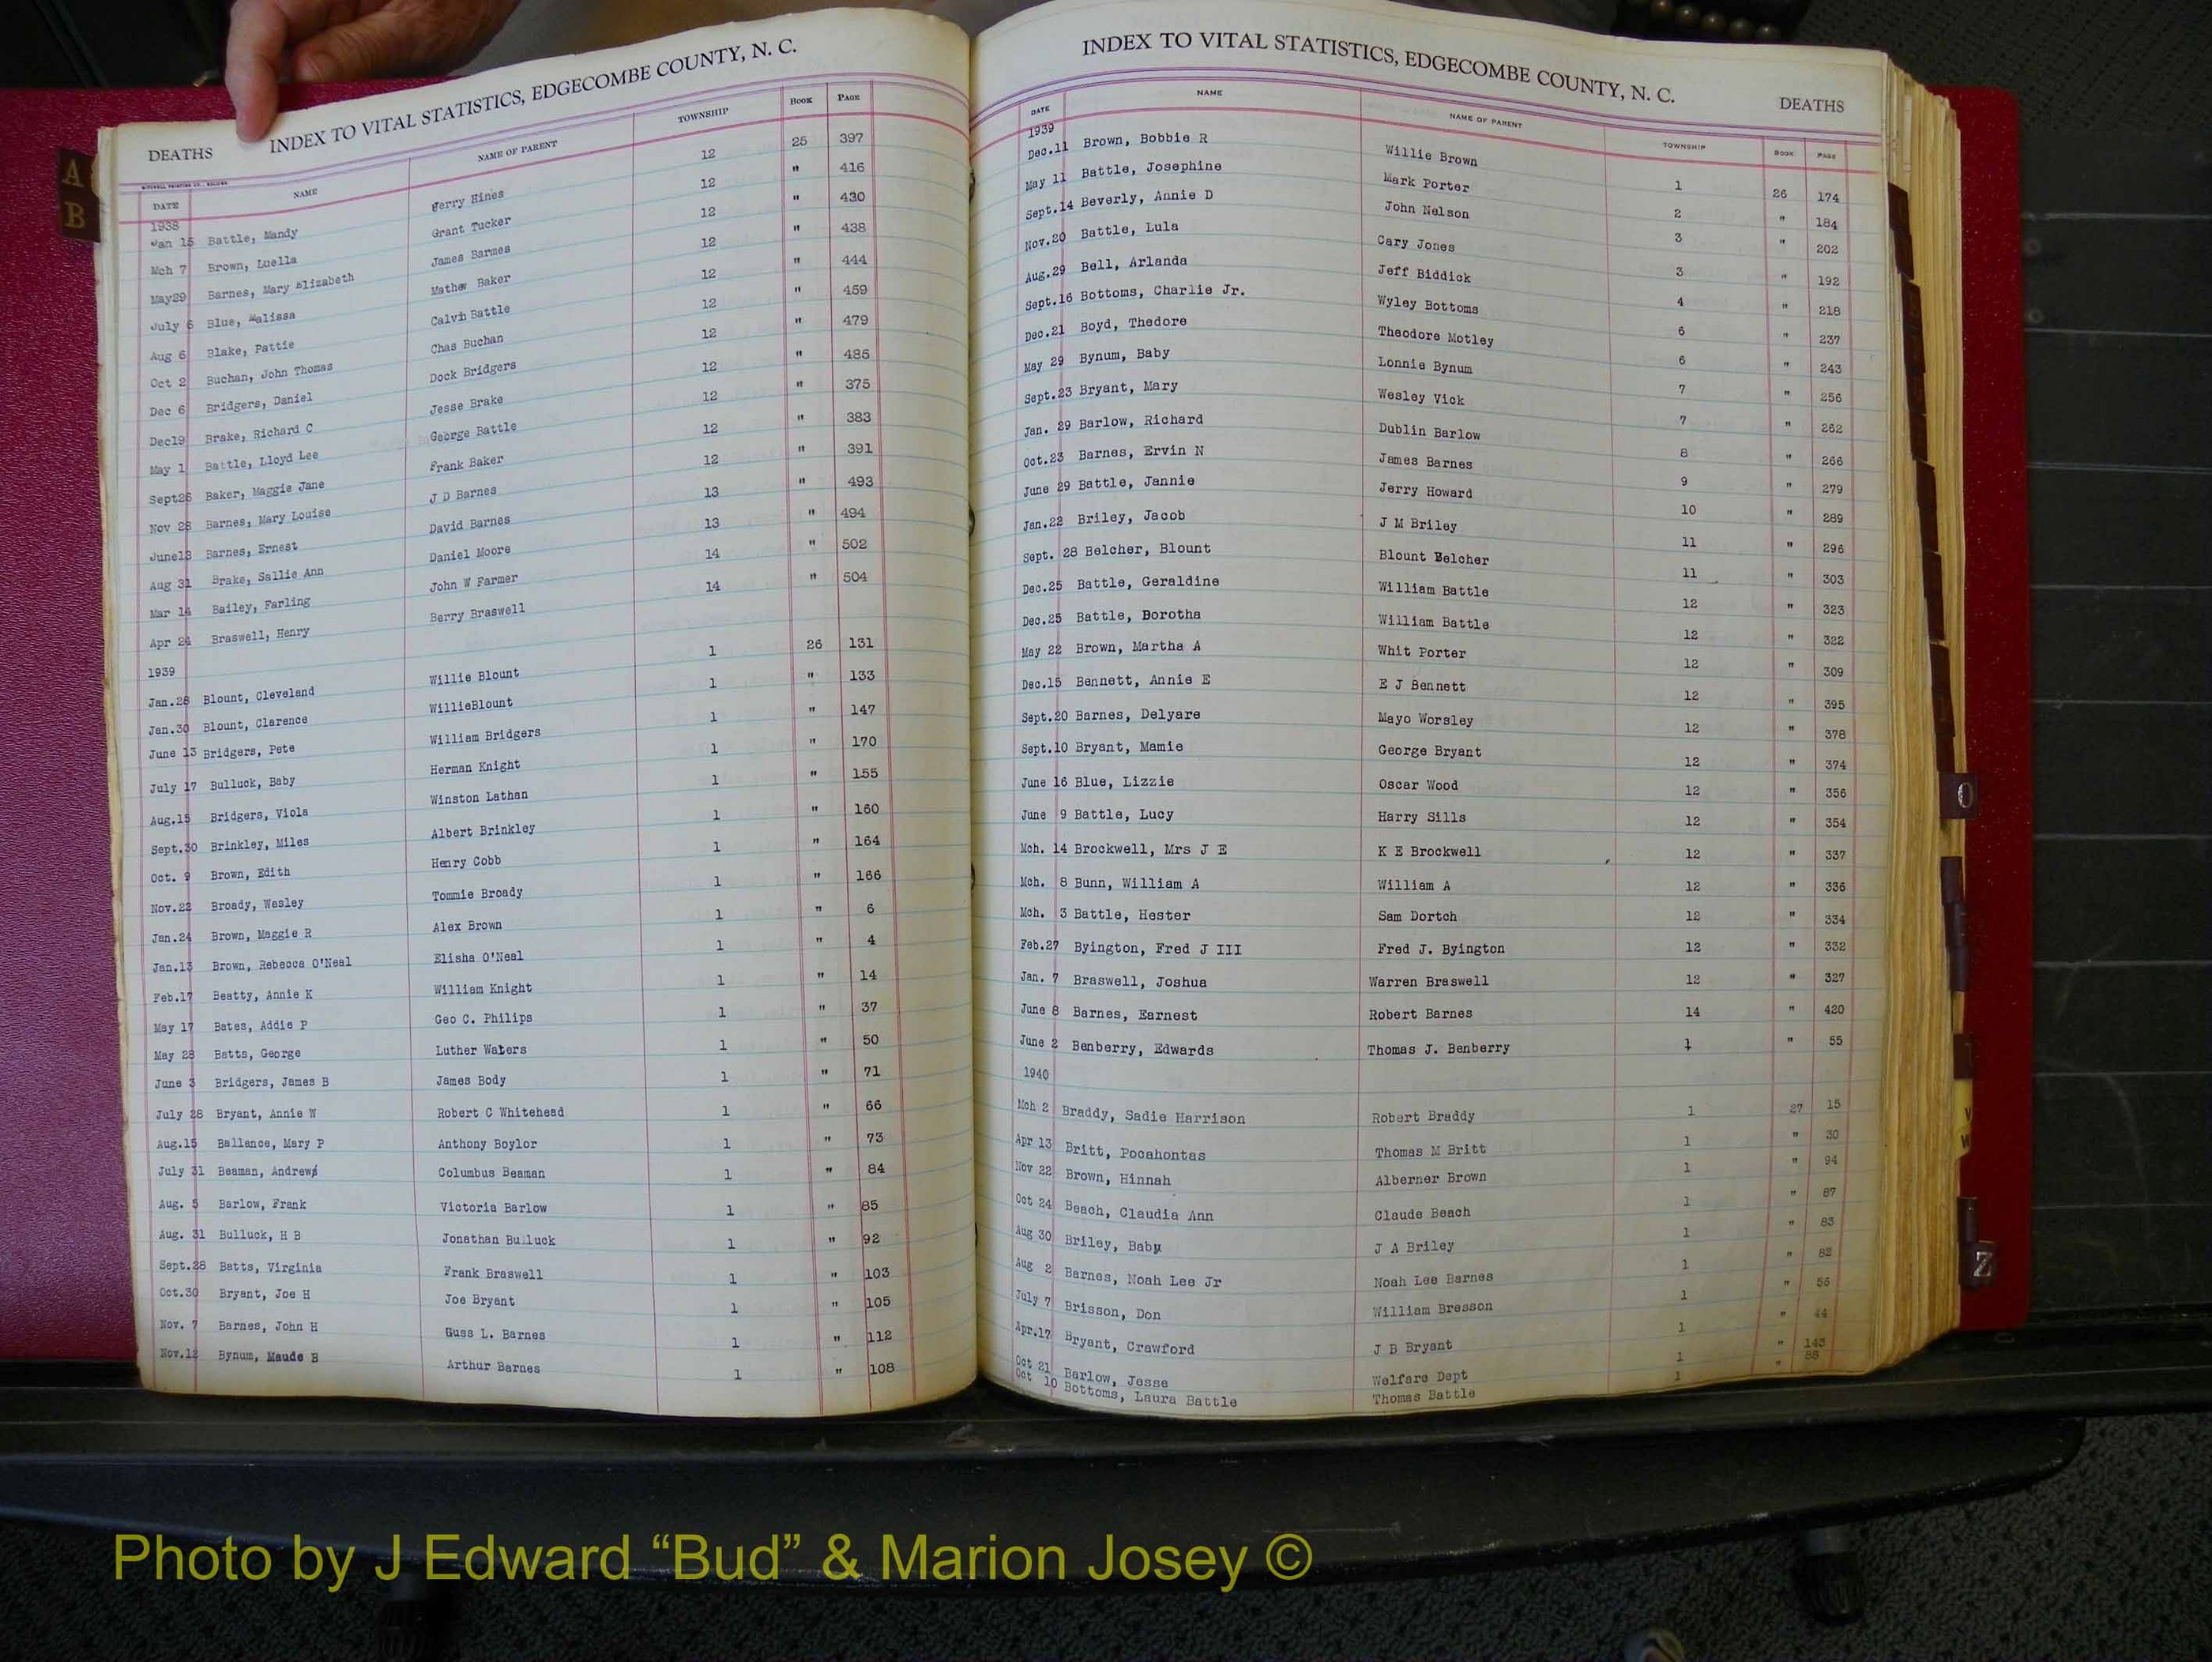 DEATHS INDEX TO VITAL STATISTICS, EDGECOMBE COUNTY, N. C.
DATE NAME NAME OF PARENT TOWNSHIP BOOK PAGE
1938
Jan 15 Battle, Mandy Gerry Hines 12 25 397
Mch 7 Brown, Luella Grant Tucker 12 " 416
May29 Barnes, Mary Elizabeth James Barmes 12 " 430
July 6 Blue, Malissa Mathew Baker 12 " 438
Aug 6 Blake, Pattie Calvin Battle 12 " 444
Oct 2 Buchan, John Thomas Chas Buchan 12 " 459
Dec 6 Bridgers, Daniel Dock Bridgers 12 " 479
Dec19 Brake, Richard C Jesse Brake 12 " 485
May 1 Battle, Lloyd Lee George Battle 12 " 375
Sept26 Baker, Maggie Jane Frank Baker 12 " 383
Nov 28 Barnes, Mary Louise J D Barnes 12 " 391
June18 Barnes, Ernest David Barnes 13 " 493
Aug 31 Brake, Sallie Ann Daniel Moore 13 " 494
Mar 14 Bailey, Farling John W Farmer 14 " 502
Apr 24 Braswell, Henry Berry Braswell 14 " 504
1939
Jan.28 Blount, Cleveland Willie Blount 1 26 131
Jan.30 Blount, Clarence WillieBlount 1 " 133
June 13 Bridgers, Pete William Bridgers 1 " 147
July 17 Bulluck, Baby Herman Knight 1 " 170
Aug.15 Bridgers, Viola Winston Lathan 1 " 155
Sept.30 Brinkley, Miles Albert Brinkley 1 " 160
Oct. 9 Brown, Edith Henry Cobb 1 " 164
Nov.22 Broady, Wesley Tommie Broady 1 " 166
Jan.24 Brown, Maggie R Alex Brown 1 " 6
Jan.13 Brown, Rebecca O'Neal Elisha O'Neal 1 " 4
Feb.17 Beatty, Annie K William Knight 1 " 14
May 17 Bates, Addie P Geo C. Philips 1 " 37
May 28 Batts, George Luther Waters 1 " 50
June 3 Bridgers, James B James Body 1 " 71
July 28 Bryant, Annie W Robert C Whitehead 1 " 66
Aug.15 Ballance, Mary P Anthony Boylor 1 " 73
July 31 Beaman, Andrew Columbus Beaman 1 " 84
Aug. 5 Barlow, Frank Victoria Barlow 1 " 85
Aug. 31 Bulluck, H B Jonathan Bulluck 1 " 92
Sept.28 Batts, Virginia Frank Braswell 1 " 103
Oct.30 Bryant, Joe H Joe Bryant 1 " 105
Nov. 7 Barnes, John H Guss L. Barnes 1 " 112
Nov.12 Bynum, Maude B Arthur Barnes 1 " 108
INDEX TO VITAL STATISTICS, EDGECOMBE COUNTY, N. C. DEATHS
DATE NAME NAME OF PARENT TOWNSHIP BOOK PAGE
1939
Dec.11 Brown, Bobbie R Willie Brown 1 26 174
May 11 Battle, Josephine Mark Porter 2 " 184
Sept.14 Beverly, Annie D John Nelson 3 " 202
Nov.20 Battle, Lula Cary Jones 3 " 192
Aug.29 Bell, Arlanda Jeff Biddick 4 " 218
Sept.16 Bottoms, Charlie Jr. Wyley Bottoms 6 " 237
Dec.21 Boyd, Thedore Theodore Motley 6 " 243
May 29 Bynum, Baby Lonnie Bynum 7 " 256
Sept.23 Bryant, Mary Wesley Vick 7 " 262
Jan. 29 Barlow, Richard Dublin Barlow 8 " 266
Oct.23 Barnes, Ervin N James Barnes 9 " 279
June 29 Battle, Jannie Jerry Howard 10 " 289
Jan.22 Briley, Jacob J M Briley 11 " 296
Sept. 28 Belcher, Blount Blount Belcher 11 " 303
Dec.25 Battle, Geraldine William Battle 12 " 323
Dec.25 Battle, Dorotha William Battle 12 " 322
May 22 Brown, Martha A Whit Porter 12 " 309
Dec.15 Bennett, Annie E E J Bennett 12 " 395
Sept.20 Barnes, Delyare Mayo Worsley 12 " 378
Sept.10 Bryant, Mamie George Bryant 12 " 374
June 16 Blue, Lizzie Oscar Wood 12 " 356
June 9 Battle, Lucy Harry Sills 12 " 354
Mch. 14 Brockwell, Mrs J E K E Brockwell 12 " 337
Mch. 8 Bunn, William A William A 12 " 336
Mch. 3 Battle, Hester Sam Dortch 12 " 334
Feb.27 Byington, Fred J III Fred J. Byington 12 " 332
Jan. 7 Braswell, Joshua Warren Braswell 12 " 327
June 8 Barnes, Earnest Robert Barnes 14 " 420
June 2 Benberry, Edwards Thomas J. Benberry 1 " 55
1940
Mch 2 Braddy, Sadie Harrison Robert Braddy 1 27 15
Apr 13 Britt, Pocahontas Thomas M Britt 1 " 30
Nov 22 Brown, Hinnah Alberner Brown 1 " 94
Oct 24 Beach, Claudia Ann Claude Beach 1 " 87
Aug 30 Briley, Baby J A Briley 1 " 83
Aug 2 Barnes, Noah Lee Jr Noah Lee Barnes 1 " 82
July 7 Brisson, Don William Bresson 1 " 56
Apr.17 Bryant, Crawford J B Bryant 1 " 44
Oct 21 Barlow, Jesse Welfare Dept 1 " 143
Oct 10 Bottoms, Laura Battle Thomas Battle 1 " 88
A
B
O
V
W
Z
Photo by J Edward “Bud” & Marion Josey ©